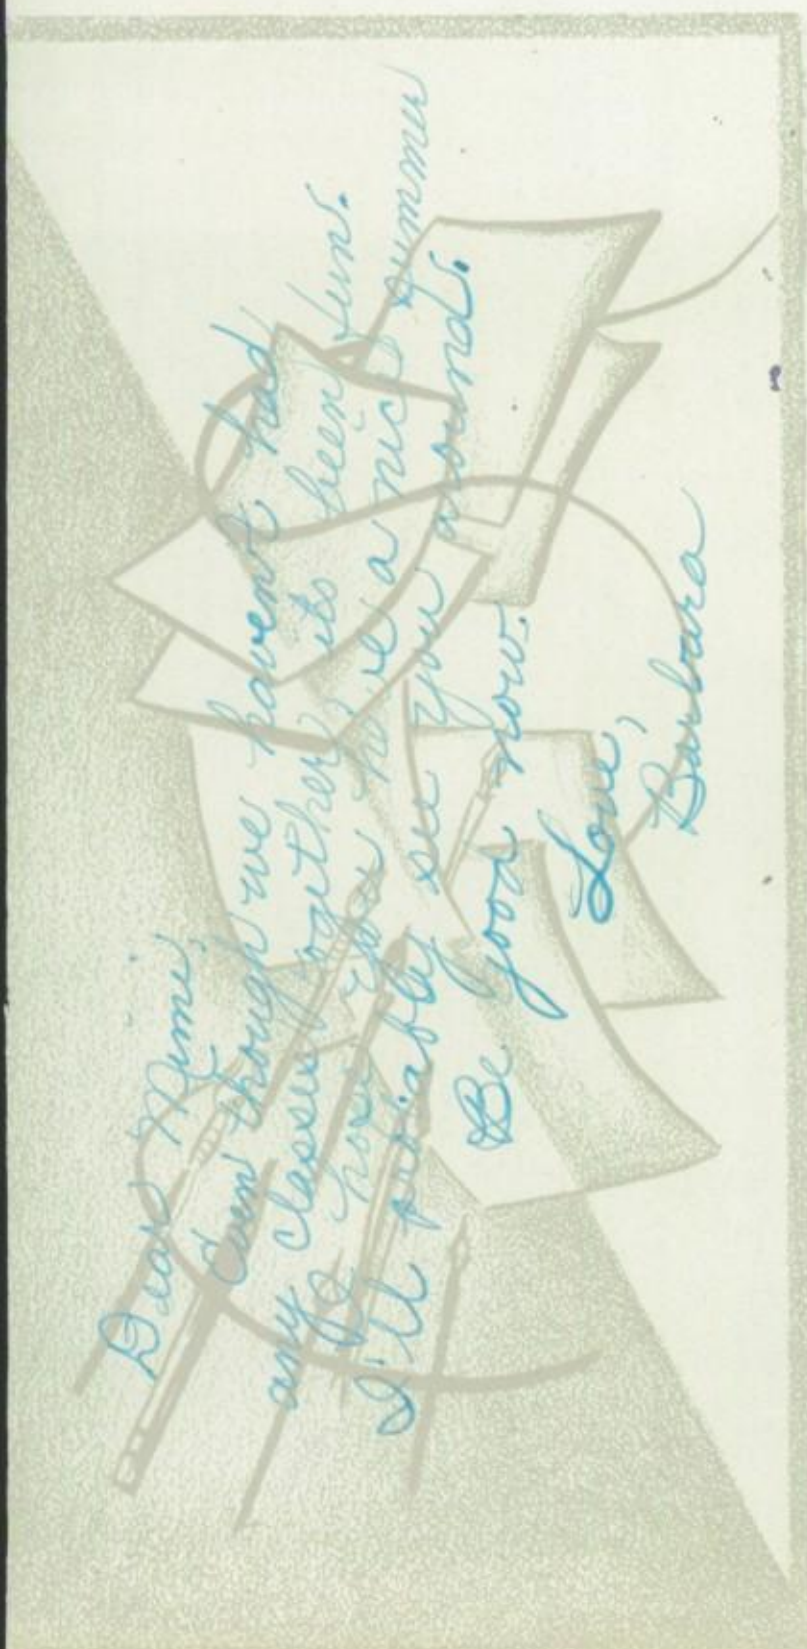 Dear Mimi,
Even though we havent had
any classes together its been fun.
I hope you have a nice summer
I'll probably see you around.
Be good now.
Love,
Barbara